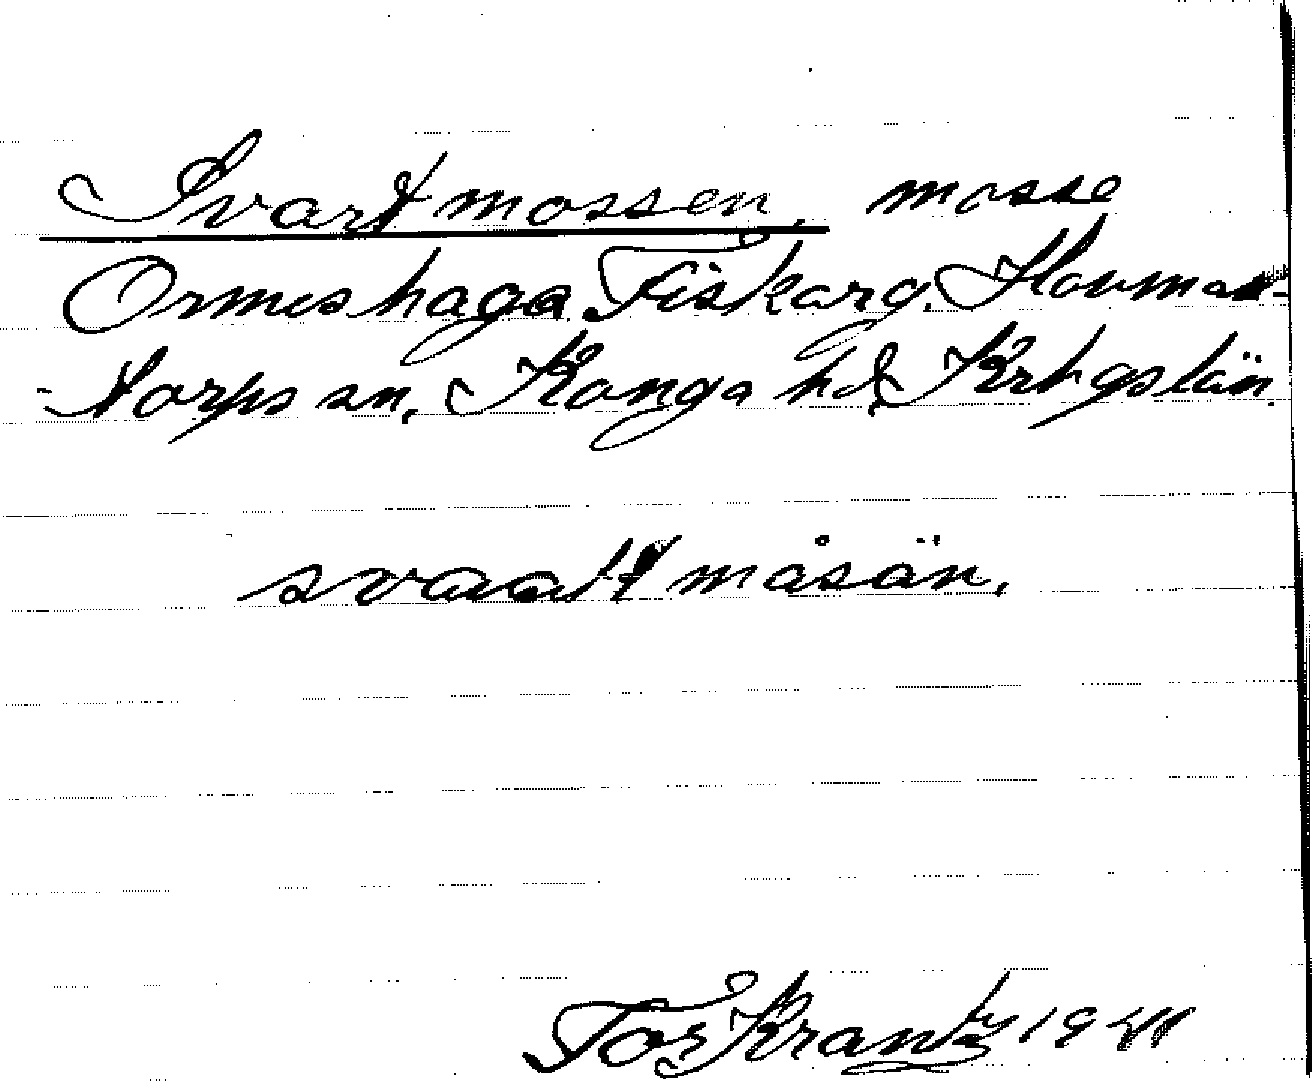 Svartmossen, mosse
Ormeshaga Fiskarg. Hovman-
-torps sn, Konga hd, Krbgs län.
svaat måsän.
Tor Krantz 1941